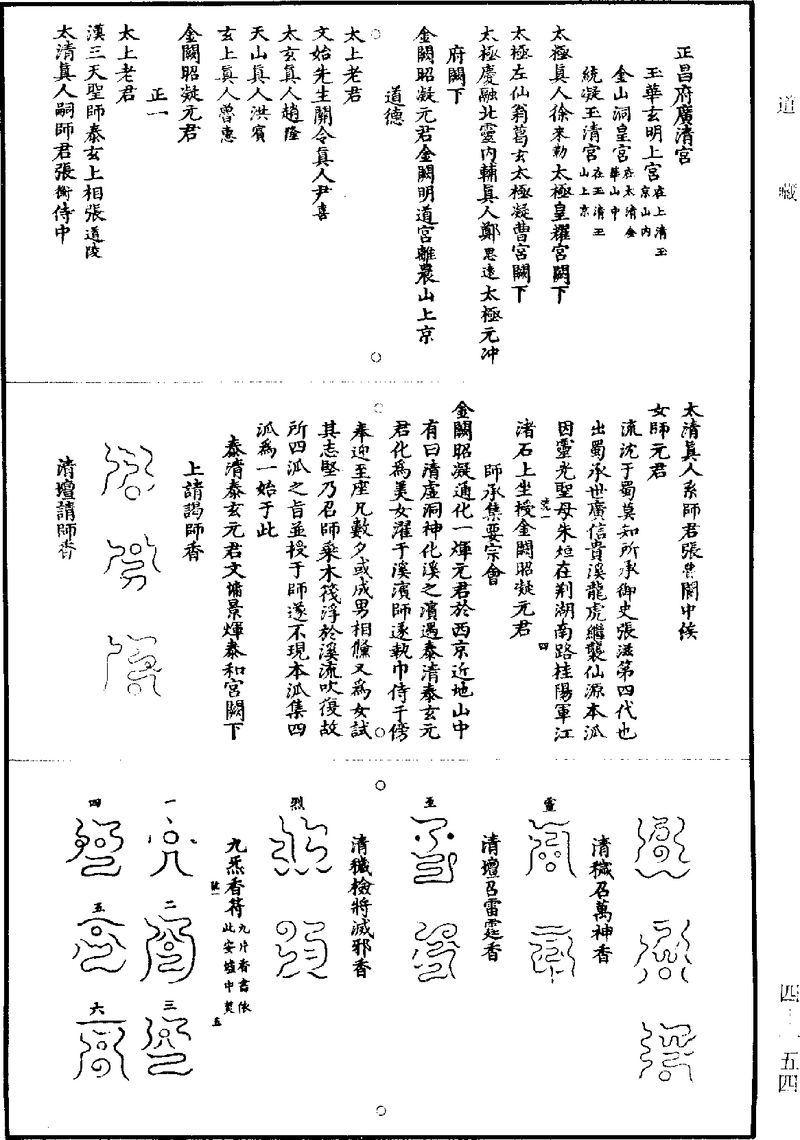 道藏
正昌府廣清宮
玉華玄明上宮在上清玉京山內
金山洞皇宮在太清金華山中
統凝玉清宮在玉清玉山上京
太極真人徐來勒太極皇耀宮闕下
太極左仙翁葛玄太極凝曹宮闕下
太極慶融北靈內輔真人鄭思遠太極元沖
府闕下
金闕昭凝元君金闕明道宮離農山上京
道德
太上老君
文始先生關令真人尹喜
太玄真人趙隆
天山真人洪賓
玄上真人曾惠
金闕昭凝元君
正一
太上老君
漢三天聖師泰玄上相張道陵
太清真人嗣師君張衡侍中
太清真人系師君張魯閬中侯
女師元君
流沈于蜀莫知所承御史張滋第四代也
出蜀承世廣信貴溪龍虎繼襲仙源本派
因靈光聖母朱烜在荆湖南路桂陽軍江
渚石上坐授金闕昭凝元君
四
師承集要宗會
金闕昭凝通化一煇元君於西京近地山中
有曰清虛洞神化溪之濱遇泰清泰玄元
君化為美女濯于溪濱師遂執巾侍于傍
奉迎至座凡數夕或成男相儵又為女試
其志堅乃召師乘木筏浮於溪流吹復故
所四派之旨並授于師遂不現本派集四
派為一始于此
泰清泰玄元君文墉景煇泰和宮闕下
上請謁師香
清壇請師香
清穢召萬神香
靈
清壇召雷霆香
至
清穢檢將滅邪香
烈
九炁香符九片香書依此安爐中焚
五
一
二
三
四
五
六
四三一五四